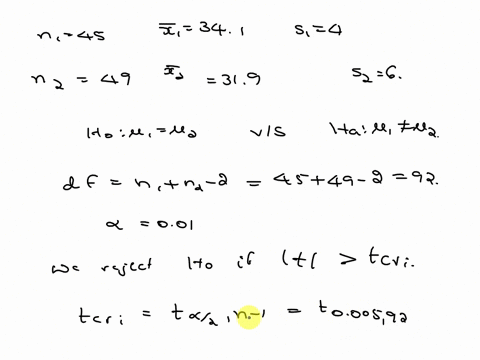 n₁=45 x̄₁=34.1 s₁=4
n₂ = 49 x̄₂ =31.9 s₂=6.
Ho: μ₁=μ₂ v/s Ha: μ₁≠μ₂.
df = n₁+n₂-2 = 45+49-2 = 92.
α = 0.01
we reject Ho if |t| > tcri.
tcri = tα/2, n-1 = t0.005,92